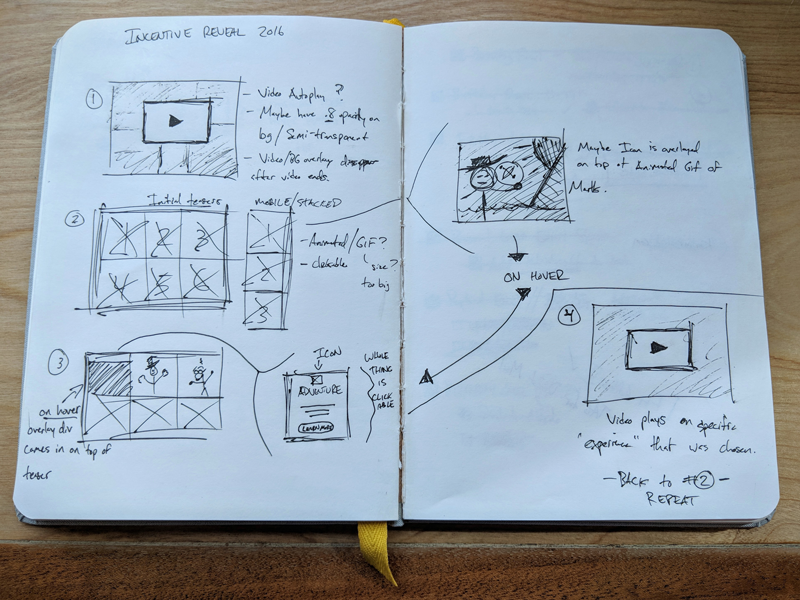 INCENTIVE REVEAL 2016
1
- Video Autoplay ?
- Maybe have .8 opacity on
bg / Semi-transparent
- Video/BG overlay disappear
after video ends.
2
Initial teasers
MOBILE/STACKED
1 2 3
4 5 6
1
2
3
- Animated / GIF ?
- clickable
size?
too big
3
on hover
overlay div
comes in on top of
teaser
ICON
ADVENTURE
LEARN MORE
WHOLE
THING
IS
CLICK
ABLE
Maybe Icon is overlayed
on top of Animated Gif of
ON HOVER
4
Video plays on specific
"experience" that was chosen.
- BACK to #2 -
REPEAT